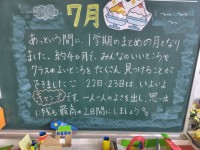 7月
あっという間に、1学期のまとめの月となり
ました。約4か月で、みんなのいいところや
プラスのまいところをたくさん見つけることが
できました。22日・23日は、いよいよ
キャンプです。一人一人のよさを出し、思い出
に残る最高の2日間にしましょう